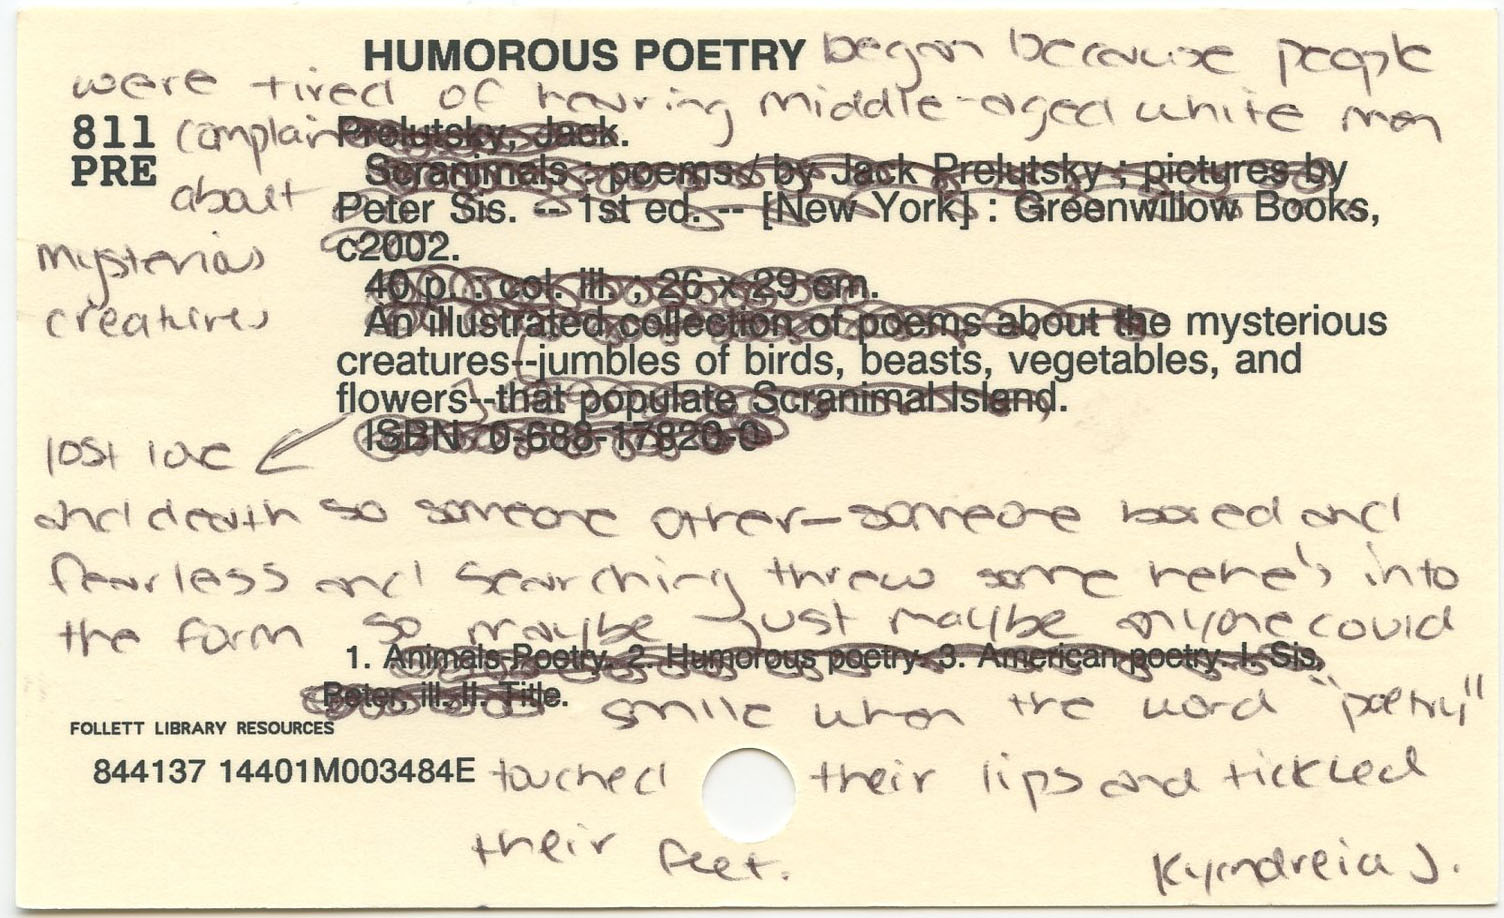 HUMOROUS POETRY began because people
were tired of hearing middle-aged white men
811 complain Prelutsky, Jack.
PRE Scranimals : poems / by Jack Prelutsky ; pictures by
about Peter Sis. -- 1st ed. -- [New York] : Greenwillow Books,
mysterious c2002.
40 p. : col. ill. ; 26 x 29 cm.
creatures An illustrated collection of poems about the mysterious
creatures--jumbles of birds, beasts, vegetables, and
flowers--that populate Scranimal Island.
ISBN 0-688-17820-0
lost love
and death so someone other-someone bored and
fearless and searching threw some hehe's into
the form so maybe just maybe anyone could
1. Animals-Poetry. 2. Humorous poetry. 3. American poetry. I. Sis,
Peter, ill. II. Title.
smile when the word "poetry"
FOLLETT LIBRARY RESOURCES
844137 14401M003484E touched their lips and tickled
their feet. Kyndreia J.